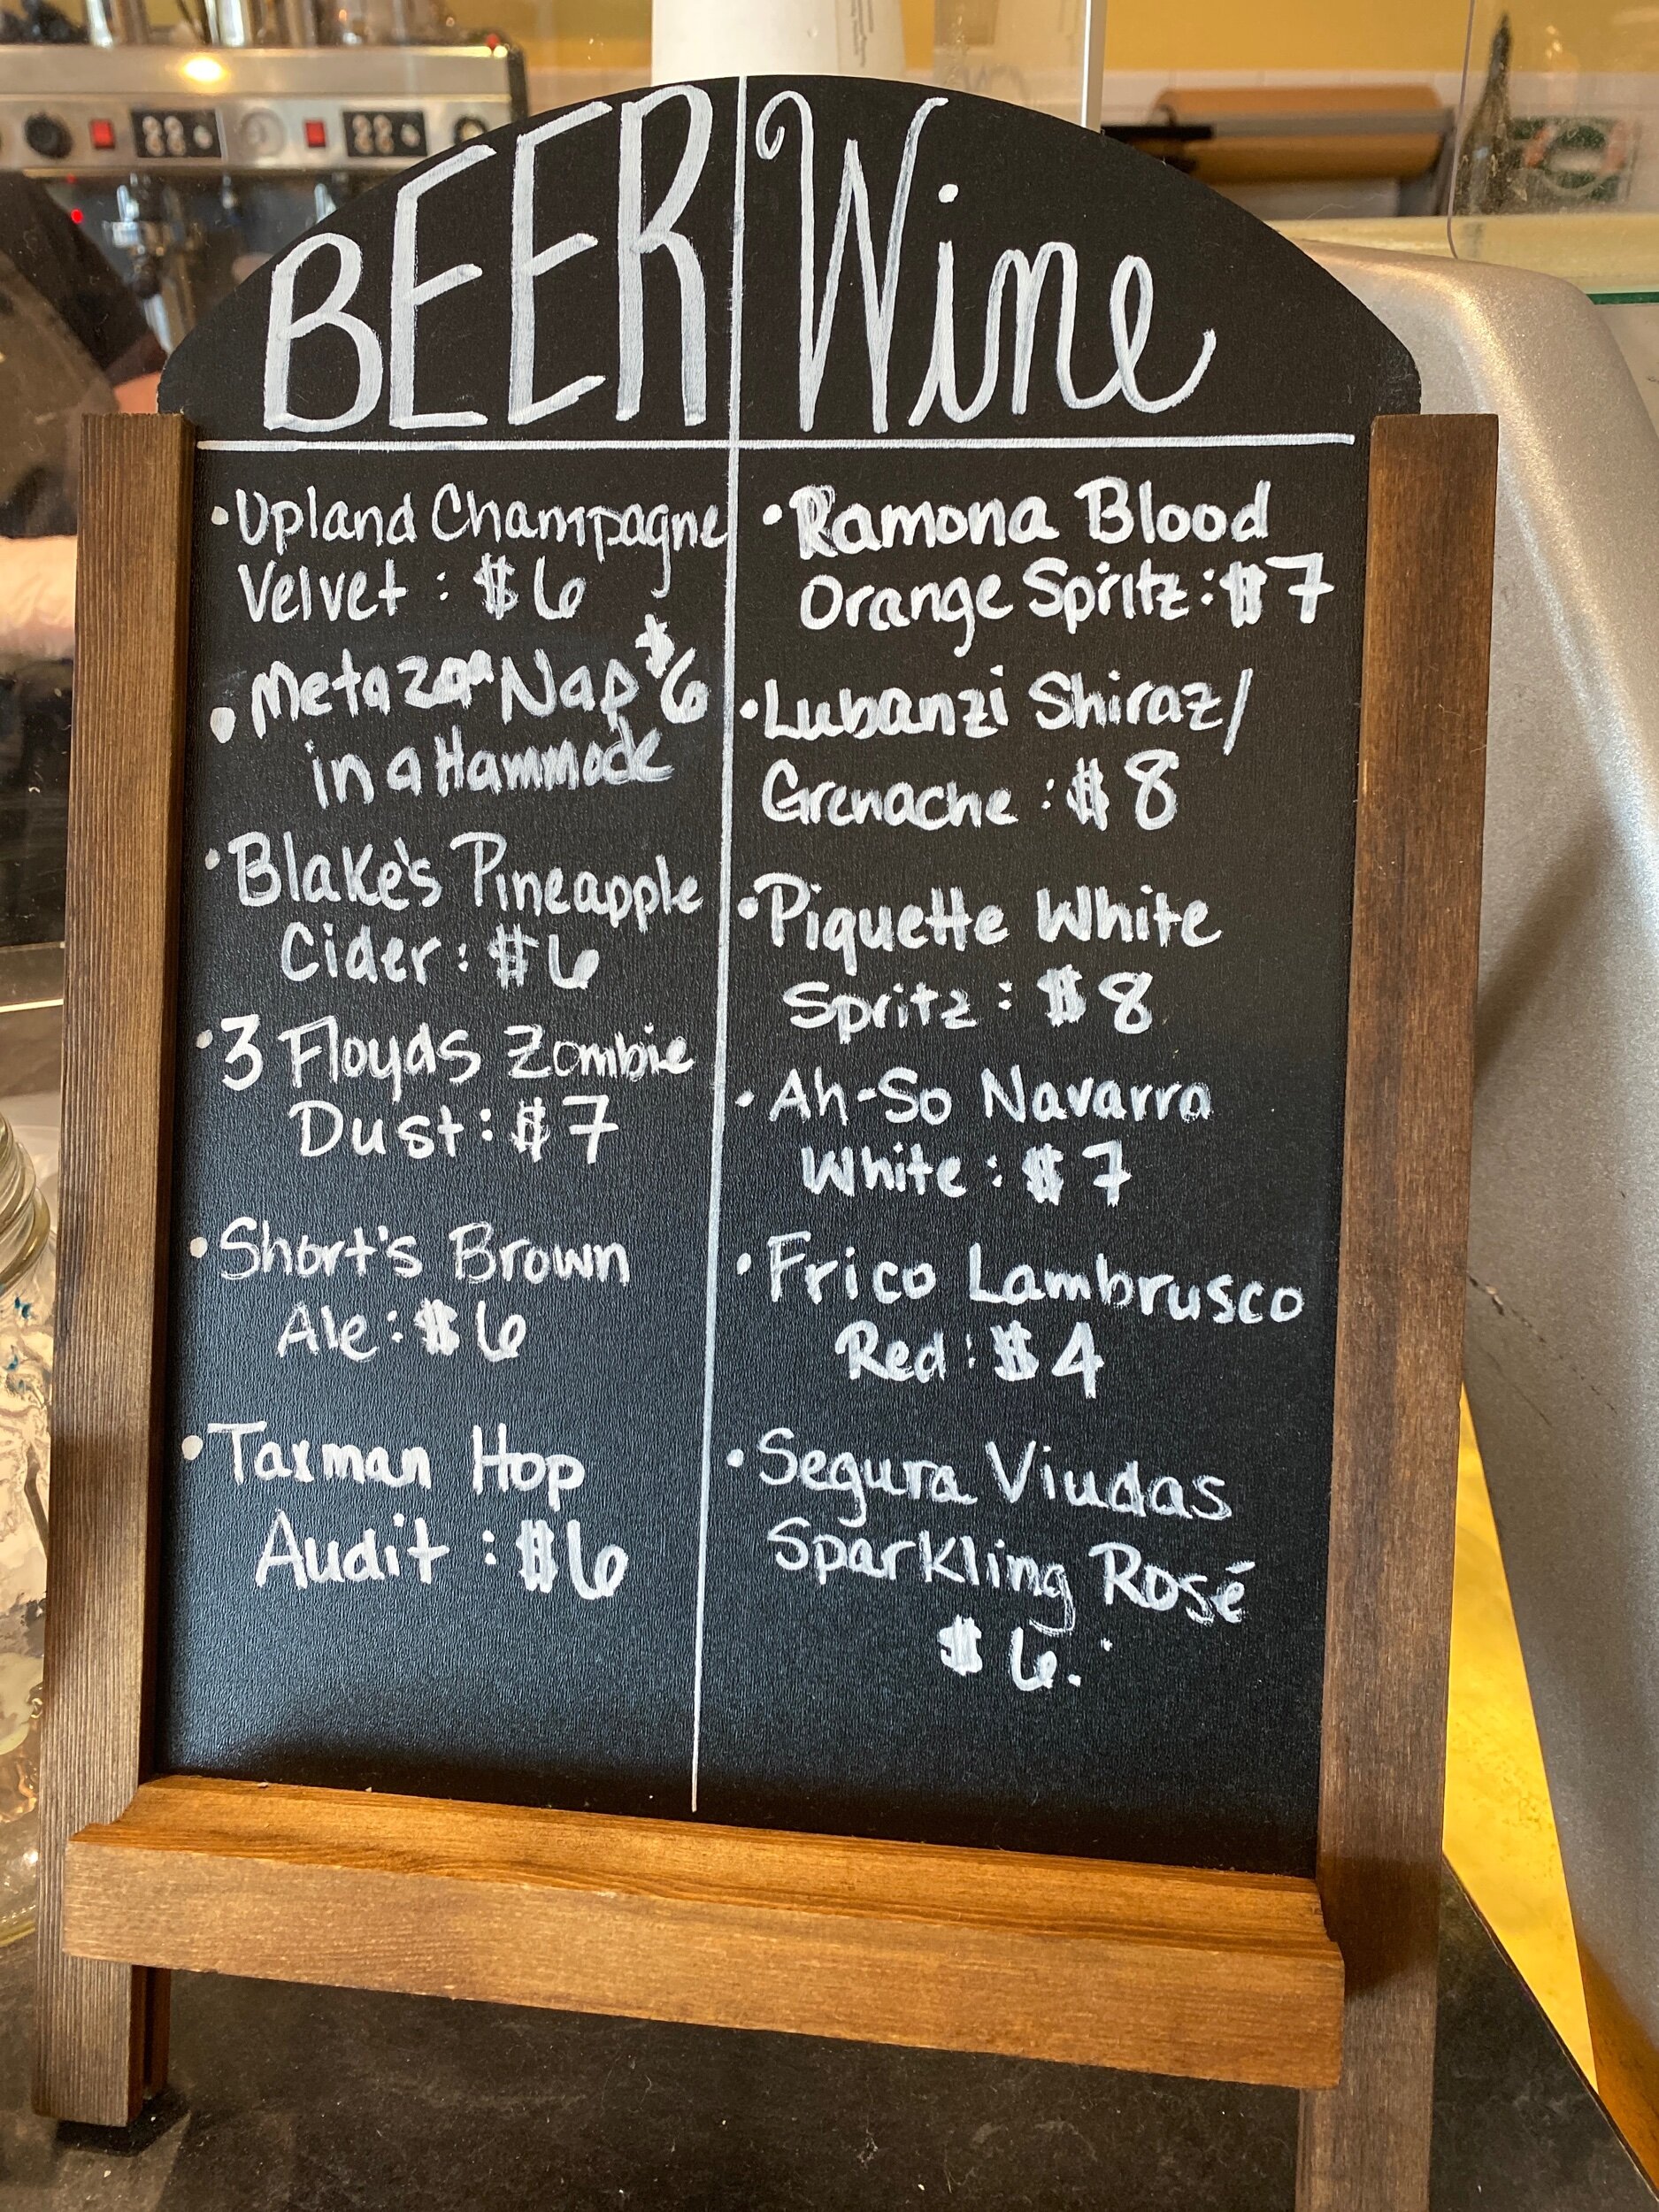 BEER
Wine
•Upland Champagne
Velvet : $6
•Metazoa Nap $6
in a Hammock
•Blake's Pineapple
Cider: $6
•3 Floyds Zombie
Dust: $7
•Short's Brown
Ale: $6
•Taxman Hop
Audit : $6
•Ramona Blood
Orange Spritz: $7
•Lubanzi Shiraz/
Grenache : $8
•Piquette White
Spritz : $8
•Ah-So Navarra
White : $7
•Frico Lambrusco
Red : $4
•Segura Viudas
Sparkling Rosé
$6.